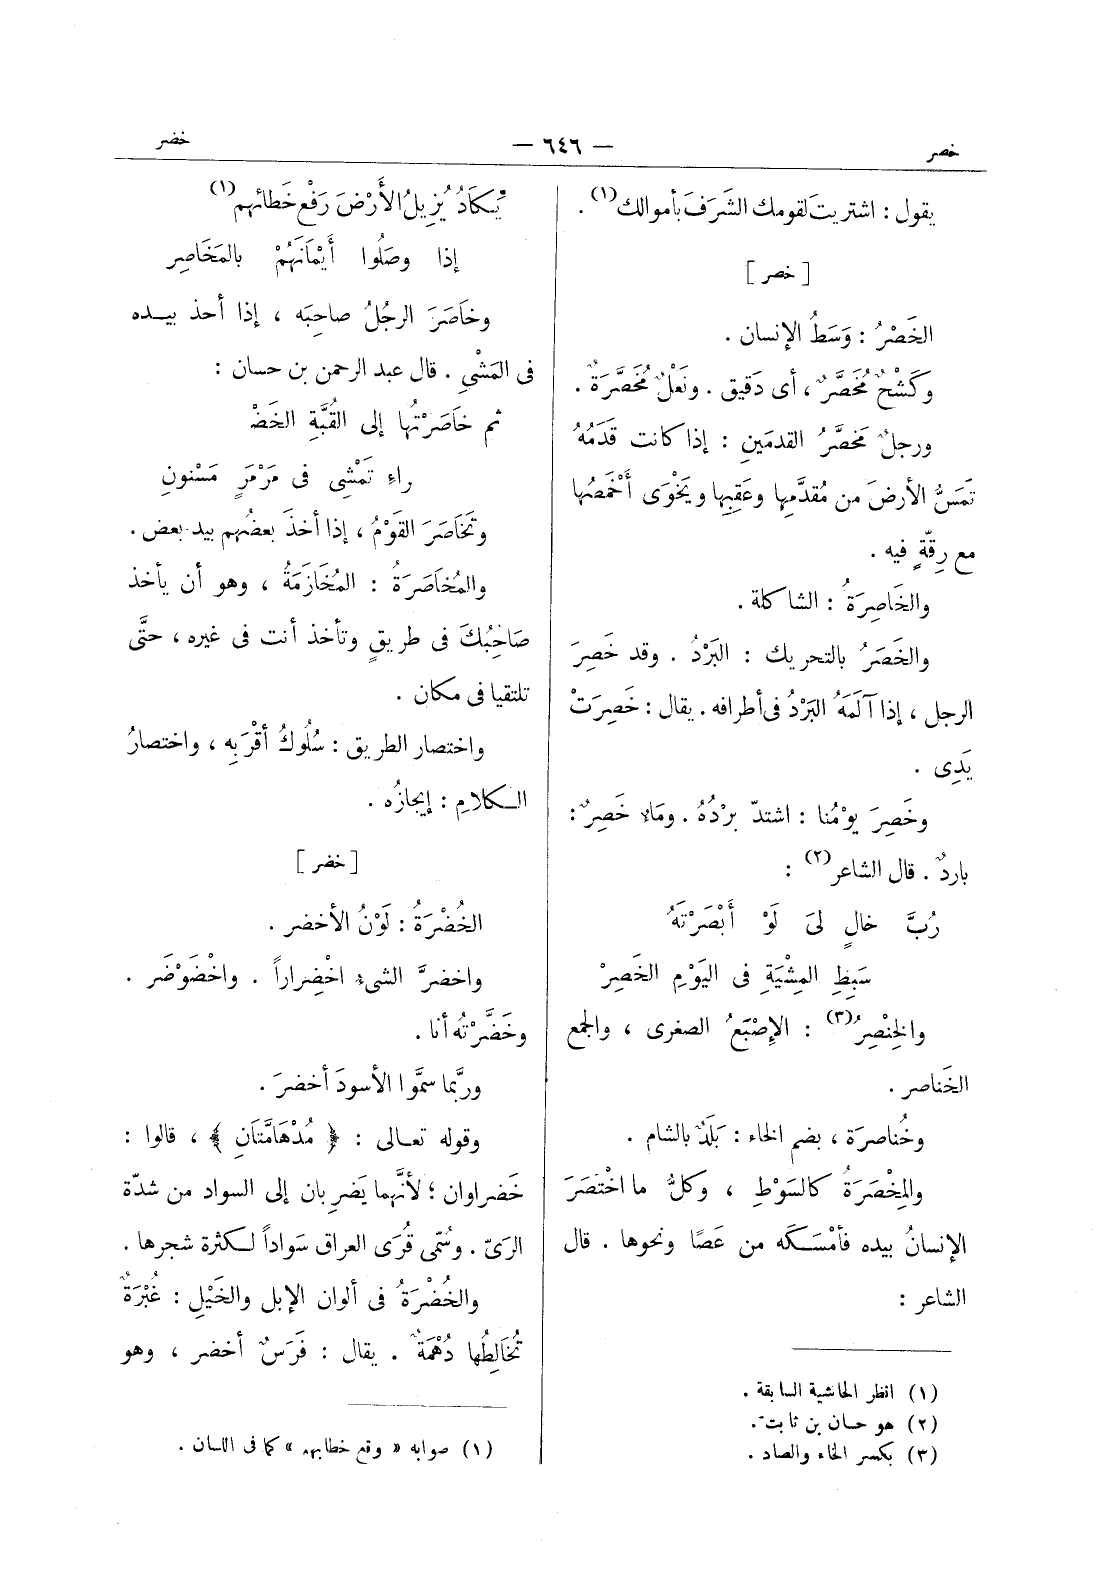 خصر
— ٦٤٦ —
خضر
يقول : اشتريت لقومك الشَرَفَ بأموالك(١) .
[ خصر ]
الخَصْرُ : وَسَطُ الإنسان .
وكَشْحٌ مُخَصَّرٌ ، أى دَقيق . ونَعْلٌ مُخَصَّرَةٌ .
ورجلٌ مُخَصَّرُ القدمَينِ : إذا كانت قَدَمُهُ
تَمَسُّ الأرضَ من مُقدَّمِها وعَقِبِها ويَخْوَى أَخْمَصُها
مع رِقَّةٍ فيه .
والخَاصِرَةُ : الشاكلة .
والخَصَرُ بالتحريك : البَرْدُ . وقد خَصِرَ
الرجل ، إذا آلَمَهُ البَرْدُ فى أطرافه . يقال : خَصِرَتْ
يَدِى .
وخَصِرَ يوْمُنا : اشتدّ بردُهُ . وماء خَصِرٌ :
باردٌ . قال الشاعر(٢) :
رُبَّ خالٍ لِىَ لَوْ أَبْصَرْتَهُ
سَبِطِ المِشْيَةِ فى اليَوْمِ الخَصِرْ
والخِنْصِرُ(٣) : الإصْبَعُ الصغرى ، والجمع
الخَناصر .
وخُناصرَة ، بضم الخاء : بَلَدٌ بالشام .
والمِخْصَرَةُ كالسَوْطِ ، وكلُّ ما اخْتَصَرَ
الإنسانُ بيده فأمْسَكَه من عَصًا ونحوها . قال
الشاعر :
(١) انظر الحاشية السابقة .
(٢) هو حسان بن ثابت .
(٣) بكسر الخاء والصاد .
يَكَادُ يُزِيلُ الأَرْضَ رَفْع خَطائهم(١)
إذا وصَلُوا أَيْمَانَهُمْ بالمَخَاصِرِ
وخاَصَرَ الرجُلُ صاحِبَه ، إذا أخذ بيده
فى المَشْىِ . قال عبد الرحمن بن حسان :
ثم خاَصَرْتُها إلى القُبَّةِ الخَضْ
راءِ تَمْشِى فى مَرْمَرٍ مَسْنونِ
وتَخَاصَرَ القَوْمُ ، إذا أخذَ بعضُهم بيد بعض .
والمُخَاصَرَةُ : المُخَازَمَةُ ، وهو أن يأخذ
صَاحِبُكَ فى طريقٍ وتأخذ أنت فى غيره ، حتَّى
تلتقيا فى مكان .
واختصار الطريق : سُلُوكُ أقْرَبِه ، واختصارُ
الكلامِ : إيجازُه .
[ خضر ]
الخُضْرَةُ : لَوْنُ الأخضر .
واخضرَّ الشىء اخْضِراراً . واخْضَوْضَر .
وخَضَّرْتُه أنا .
وربَّما سمَّوا الأسودَ أخضرَ .
وقوله تعالى : ﴿ مُدْهَامَّتَانِ ﴾ ، قالوا :
خَضراوان ؛ لأنَّهما يَضرِبان إلى السواد من شدّة
الرىّ . وسُمّى قُرَى العراق سَواداً لكثرة شجرها .
والخُضْرَةُ فى ألوان الإبل والخَيْلِ : غُبْرَةٌ
تُخَالِطُها دُهْمَةٌ . يقال : فَرَسٌ أخضر ، وهو
(١) صوابه « وقع خطابهم » كما فى اللسان .